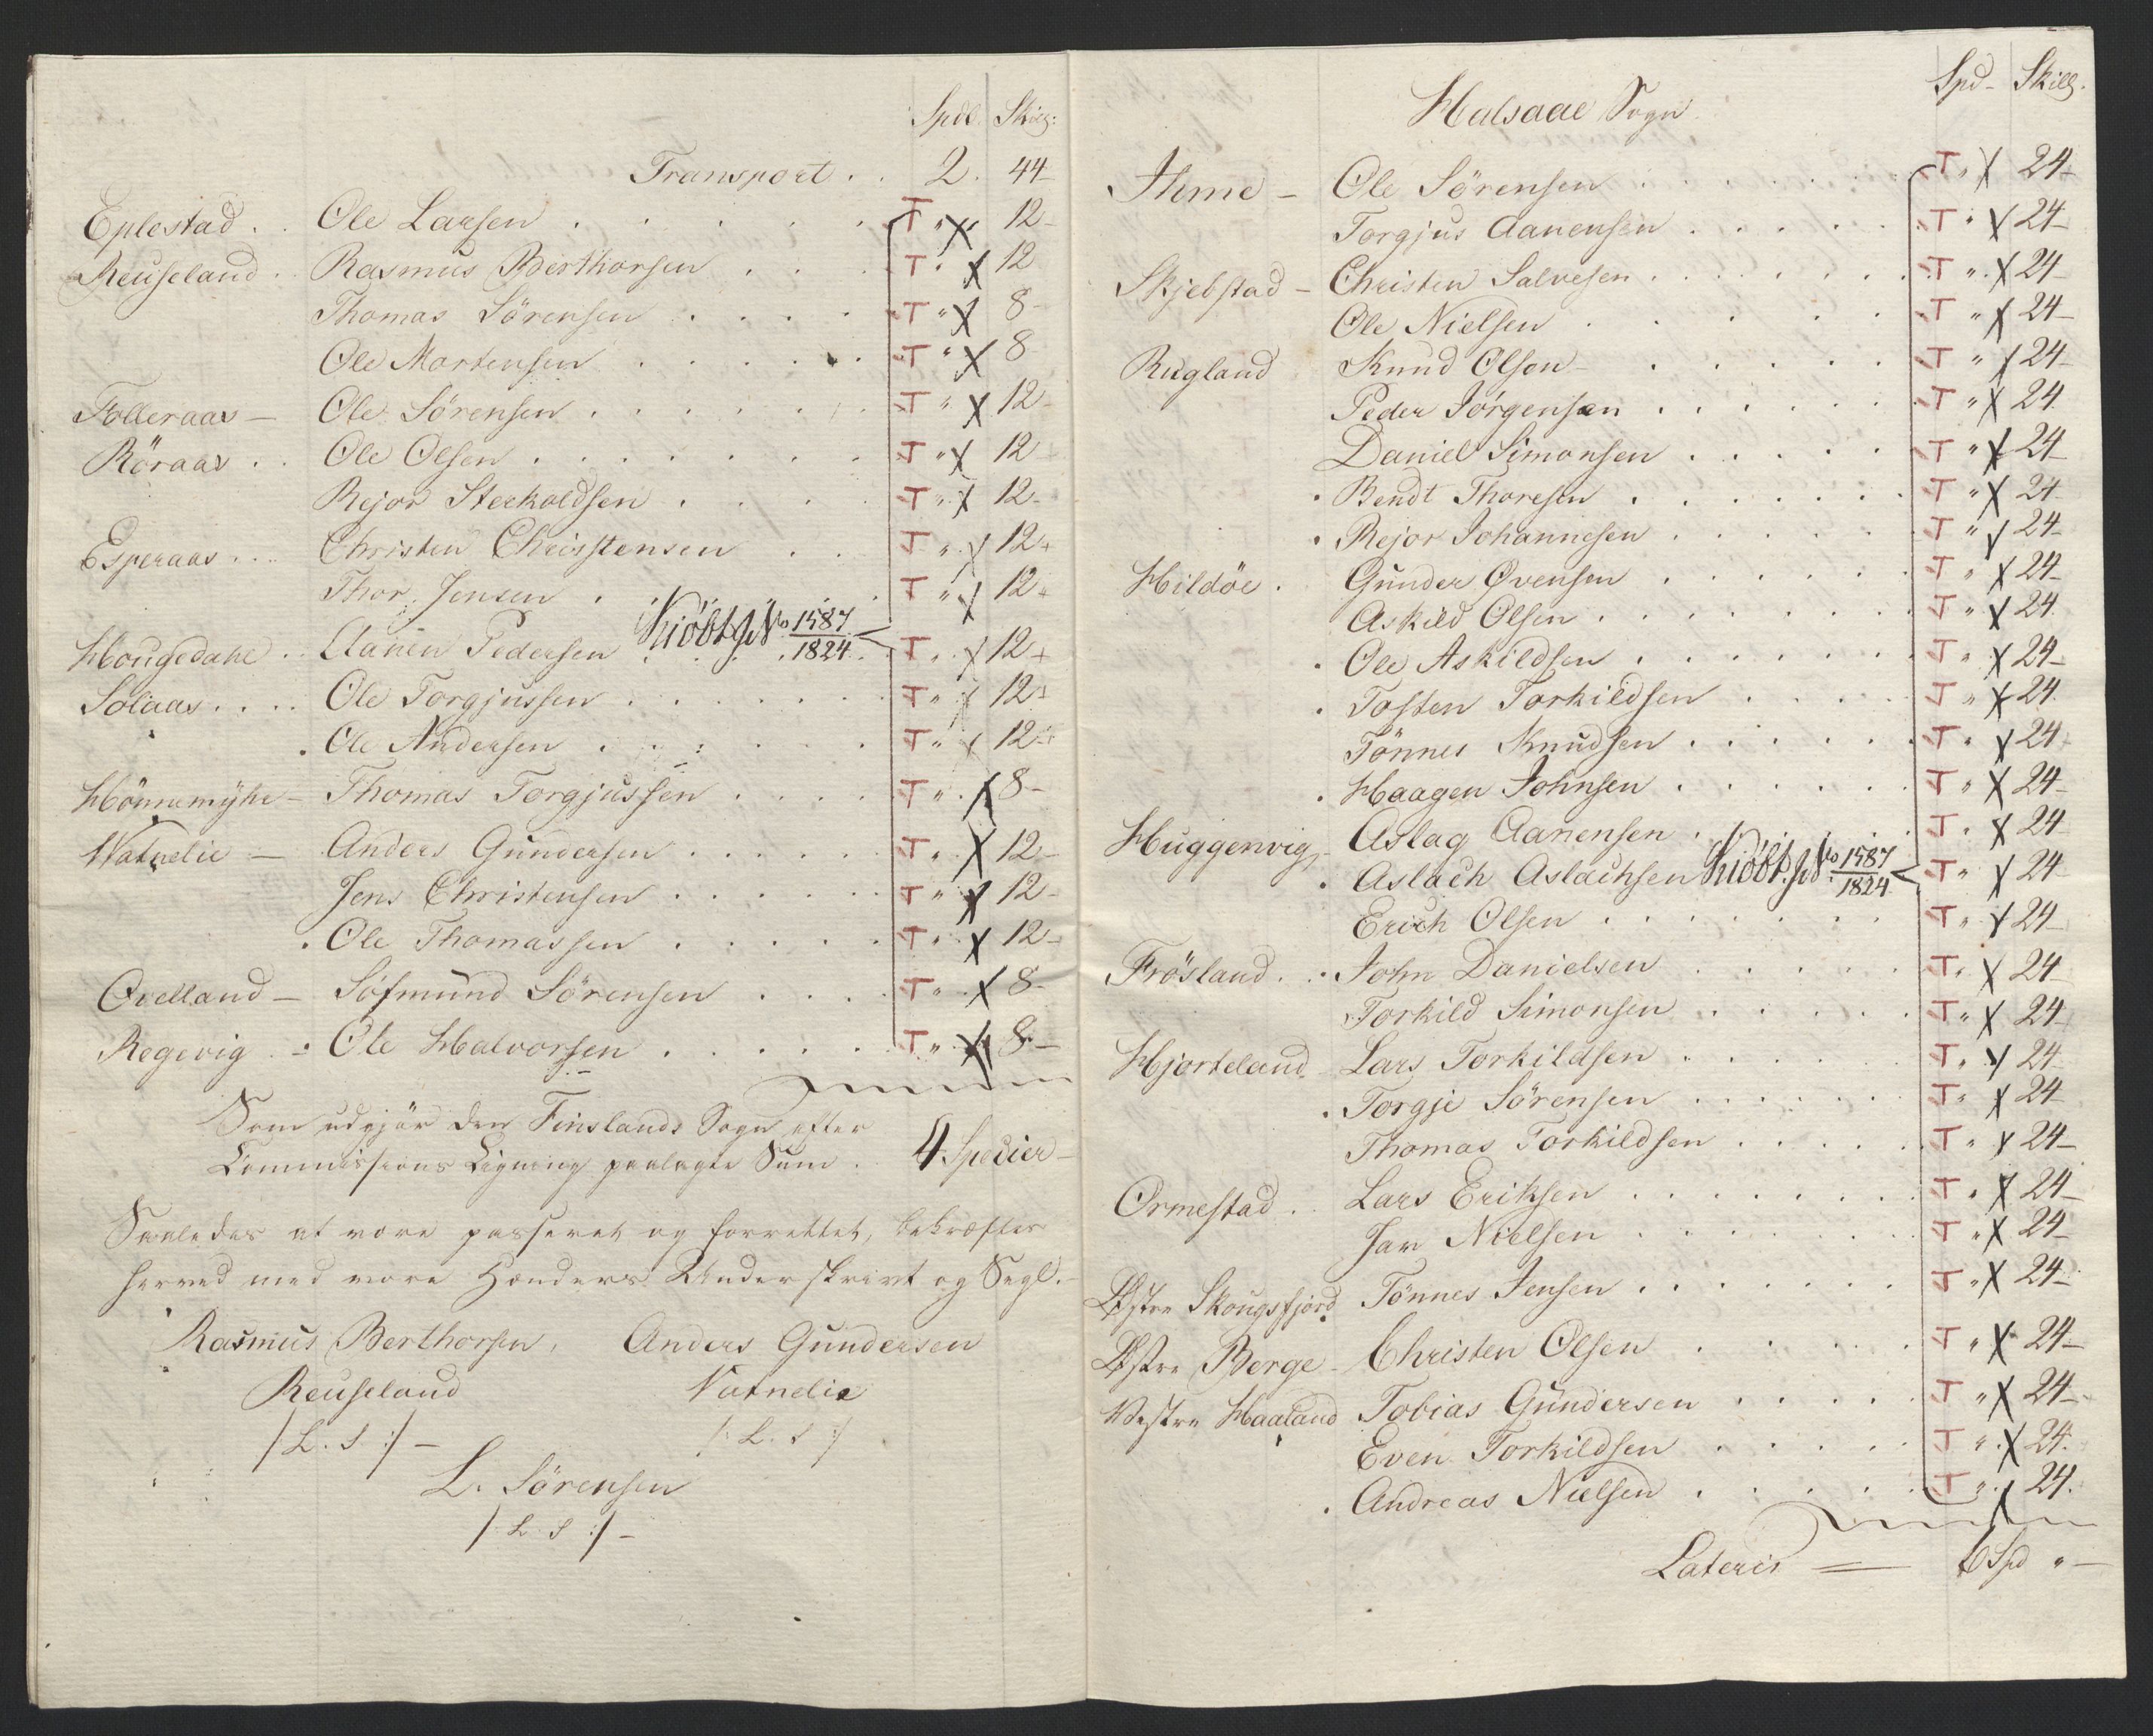 Spdl. Skill:
Transport . . 2. 44
Eplestad . . Ole Larsen . . . . . T " x 12
Reuseland . . Rasmus Berthorsen . . . T " x 12
Thomas Sörensen . . . . T " x 8
Ole Mortensen . . . . . T " x 8
Folleraas — Ole Sörensen . . . . . . T " x 12
Röraas . . Ole Olsen . . . . . . . T " x 12
Rejor Sterkoldsen . . . . T " x 12
Esperaas . . . Christen Christensen . . T " x 12
Thor Jensen . . . . T " x 12
Hougedahl . . Aanen Pedersen Kiöbt. S. No 1587/1824 T " x 12
Solaas . . . . Ole Torgjussen . . . . . . T " x 12
. Ole Andersen . . . . . . T " x 12
Hönnemyhr — Thomas Torgjussen . . . . T " x 8
Watnelie — Anders Gundersen . . . . . . T " x 12
Jens Christensen . . . . . T " x 12
. Ole Thomassen . . . . . T " x 12
Ovelland — Sofmund Sörensen . . . . T " x 8
Regevig . — . Ole Halvorsen . . . . . . T " x 8
Som udgjör den Finslands Sogn efter
Commissions Ligning paalagte Sum . 4 Specier —
Saaledes at være passeret og forrettet, bekræftes
herved med vore Hænders Underskrivt og Segl. —
Rasmus Berthorsen, Anders Gundersen
Reuseland Vatnelie
/: L. S :/ — /: L. S :/
L. Sörensen
/: L S :/ —
Spd — Skill.
Halsaae Sogn
Ihme — Ole Sörensen . . . . . . T " x 24
Torgjus Aanensen . . . . . T " x 24
Skjebstad — Christen Salvesen . . . . . . . T " x 24
Ole Nielsen . . . . . . T " x 24
Rugland Knud Olsen . . . . . T " x 24
Peder Jörgensen . . . . . . T " x 24
Daniel Simonsen . . . . . T " x 24
. Bendt Thoresen . . . . . . . T " x 24
. Rejor Johannesen . . . . . . T " x 24
Hildöe . Gunder Ovensen . . . . . . T " x 24
Askild Olsen . . . . . . . . T " x 24
. Ole Askildsen . . . . . . . T " x 24
. Tosten Torkildsen . . . . T " x 24
Tönnes Knudsen . . . . . . T " x 24
. Haagen Johnsen . . . . . . T " x 24
Huggenvig — Aslag Aanensen . . . T " x 24
. Aslach Aslachsen Kiöbt. S. No 1587/1824 T " x 24
Erich Olsen . . . . . . . T " x 24
Frösland . . . John Danielsen . . . . . T " x 24
Torkild Simonsen . . . . . T " x 24
Hjorteland — Lars Torkildsen . . . . . T " x 24
. Torgje Sörensen . . . . . . . T " x 24
Thomas Torkildsen . . . . . T " x 24
Ormestad . . Lars Eriksen . . . . . . . . T " x 24
Jan Nielsen . . . . . . . T " x 24
Østre Skougsfjord Tönnes Jensen . . . . . . . T " x 24
Østre Berge — Christen Olsen . . . . . T " x 24
Vestre Haaland Tobias Gundersen . . . . . T " x 24
Even Torkildsen . . . . . T " x 24
. Andreas Nielsen . . . . . T " x 24
Lateris = 6 Spd " —